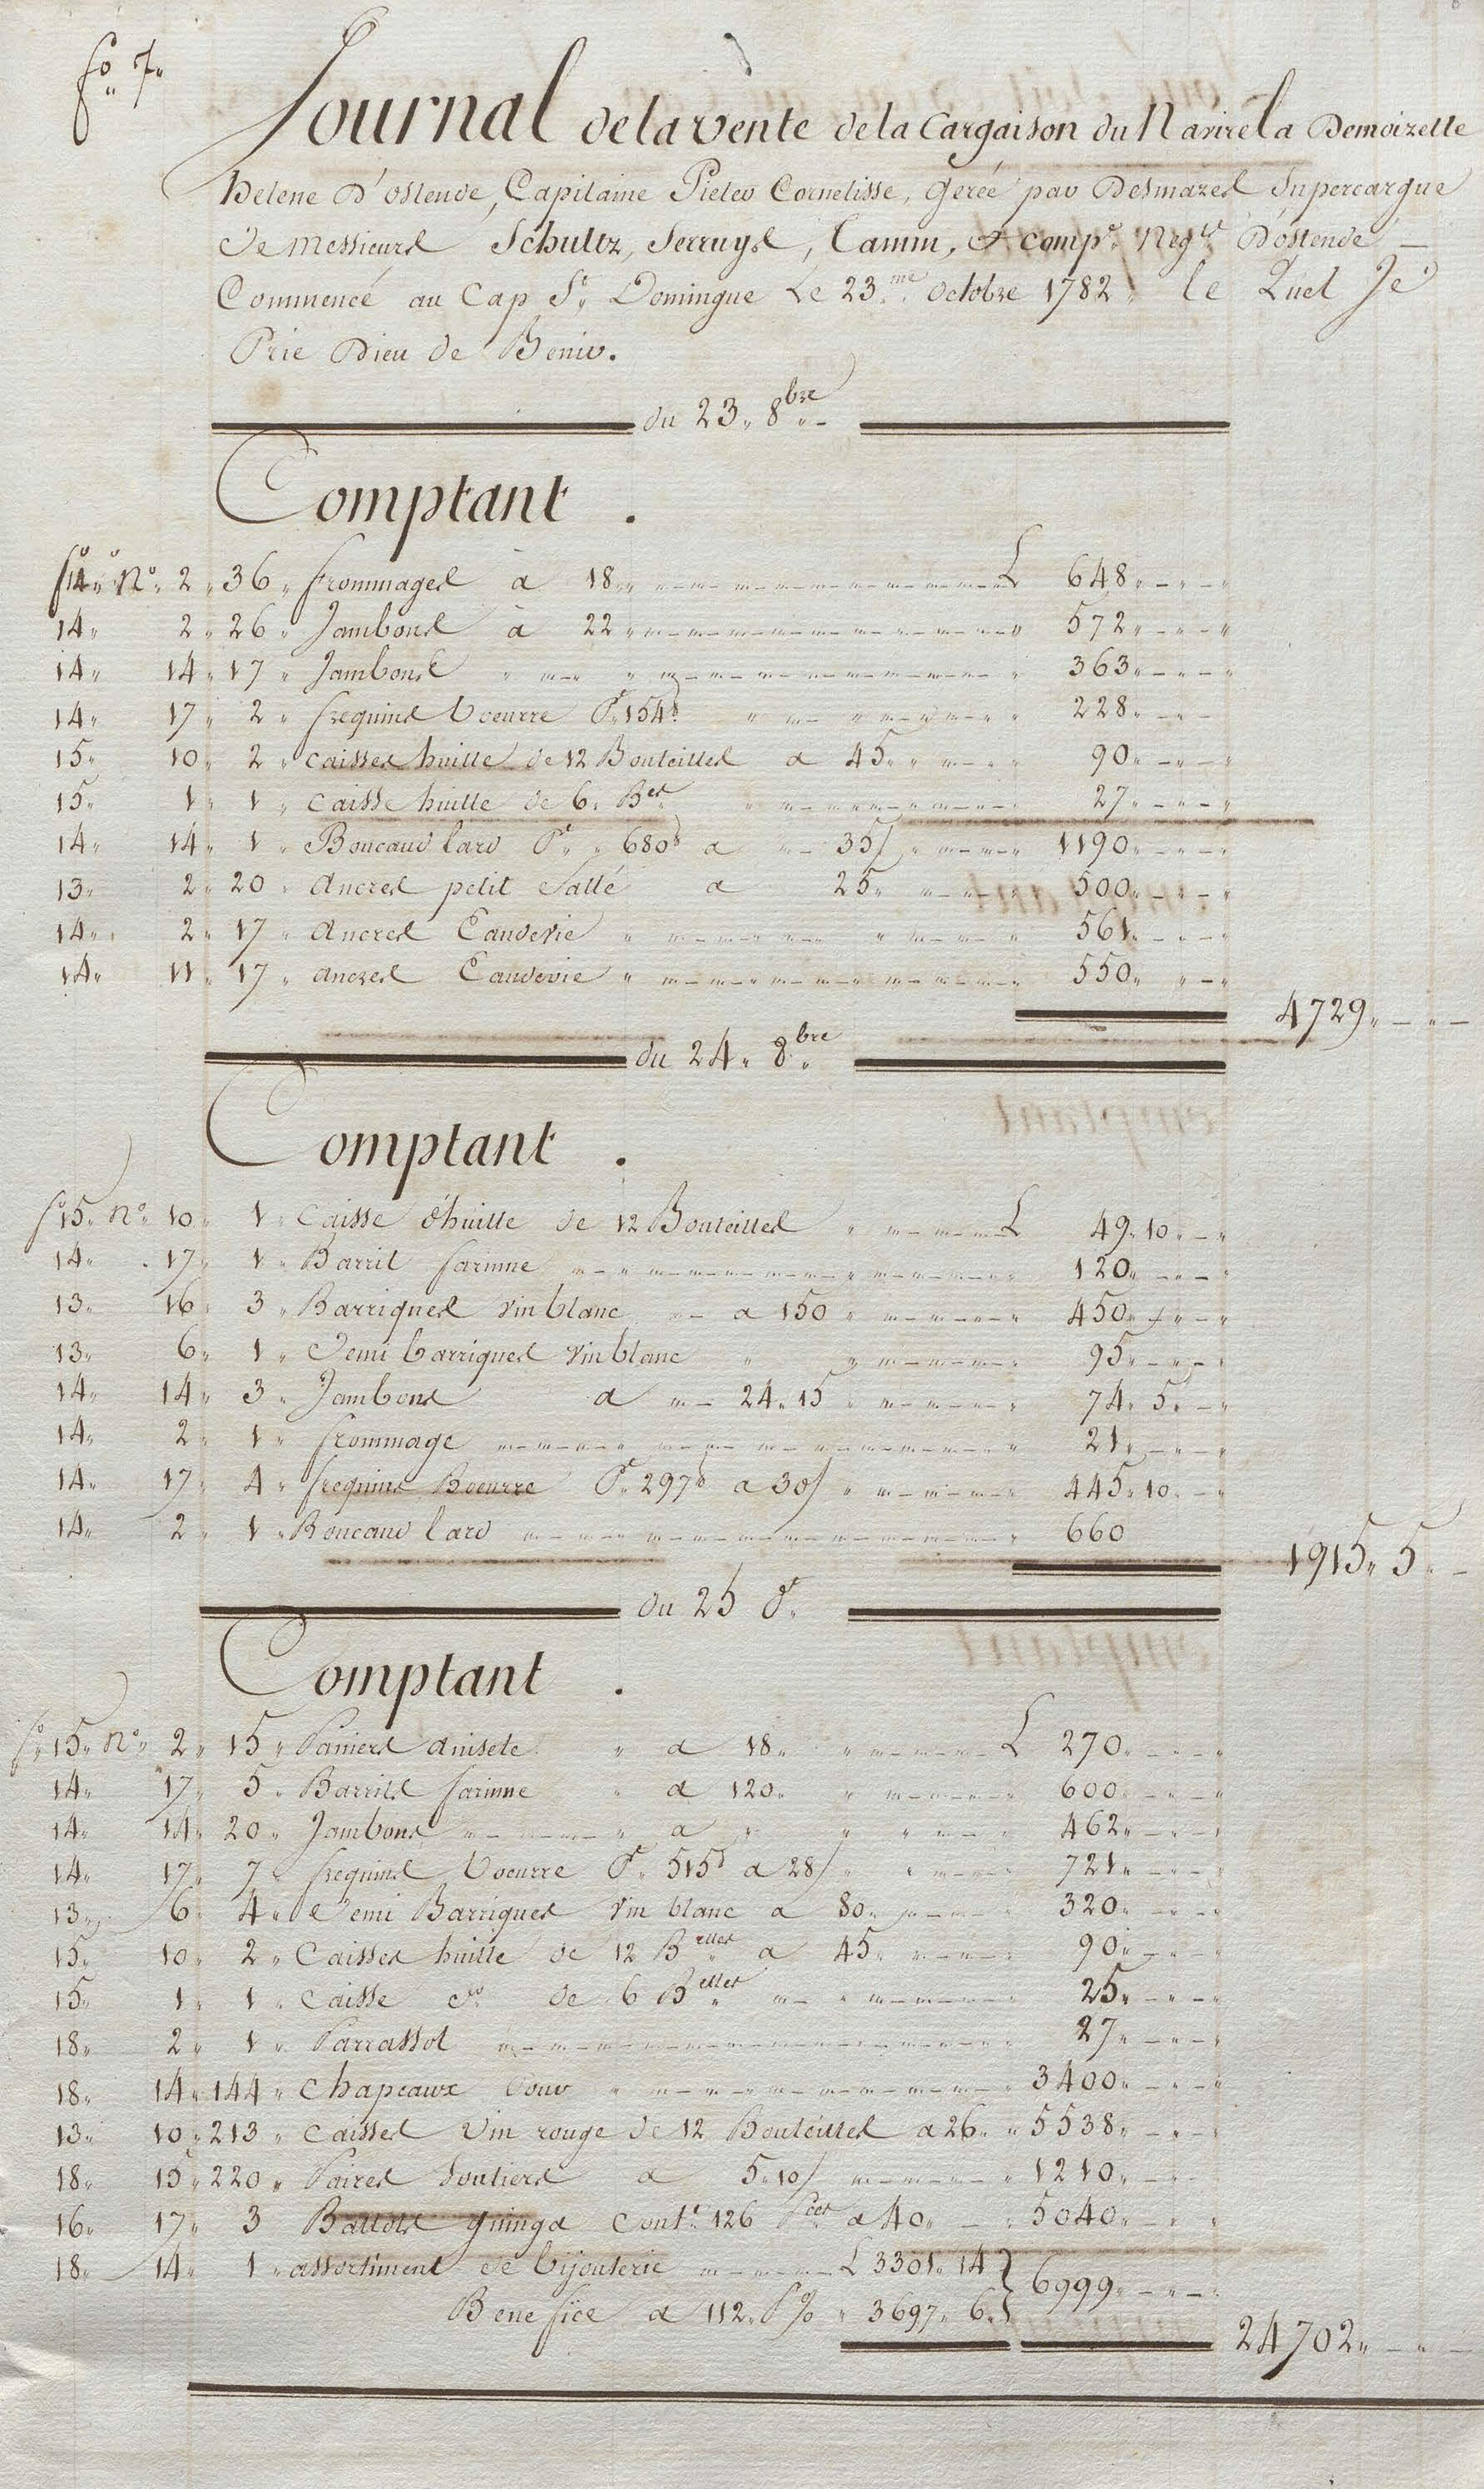 fo 7.
Journal de la vente de la Cargaison du Navire la Demoizelle
helene D'ostende, Capitaine Pieter Cornelisse, gerée par Desmazes Supercargue
de Messieurs Schultz, Serruys, Camm, & compe. Negts. D'ostende
Commencé au Cap St. Domingue Le 23.me octobre 1782 le Quel Je
Prie Dieu de Benir.
du 23. 8bre
Comptant.
fo 14. No. 2. 36. frommages à 18. L 648.
14. 2. 26. Jambons à 22. 572.
14. 14. 17. Jambons 363.
14. 17. 2. frequins boeurre Pt. 154 lb 228.
15. 10. 2. caisses huille de 12 Bouteilles a 45. 90.
15. 1. 1. caisse huille de 6. Bes 27.
14. 14. 1. Boucaud lard Pt. 680 lb a 35/ 1190.
13. 2. 20. Ancres petit Sallé a 25. 500.
14. 2. 17. Ancres Eaudevie 561.
14. 11. 17. ancres Eaudevie 550.
4729.
du 24. 8bre
Comptant.
fo 15. No. 10. 1. Caisse d'huille de 12 Bouteilles L 49. 10.
14. 17. 1. Barril farinne 120.
13. 16. 3. Barriques vin blanc a 150 450.
13. 6. 1. Demi barriques vin blanc 95.
14. 14. 3. Jambons a 24. 15 74. 5.
14. 2. 1. frommage 21.
14. 17. 4. frequins Boeurre Pt. 297 lb a 30/ 445. 10.
14. 2. 1. Boucaud lard 660
1915. 5.
du 25 do.
Comptant.
fo. 15. No. 2. 15. Paniers anisete a 18. L 270.
14. 17. 5. Barrils farinne a 120. 600.
14. 14. 20. Jambons a 462.
14. 17. 7. frequins boeurre Pt. 515 lb a 28/ 721.
13. 6. 4. Demi Barriques vin blanc a 80. 320.
15. 10. 2. Caisses huille de 12 Belles a 45. 90.
15. 1. 1. Caisse do. de 6 Belles 25.
18. 2. 1. Parrassol 27.
18. 14. 144. Chapeaux 3400.
13. 10. 213. Caisses Vin rouge de 12 Bouteilles a 26. 5538.
18. 15. 220. Paires Souliers a 5. 10/ 1210.
16. 17. 3 Ballots guinga Contt. 126 Pces a 40. 5040.
18. 14. 1. assortiment de bijouterie L 3301. 14
Benefice a 112. P% 3697. 6. 6999.
24702.